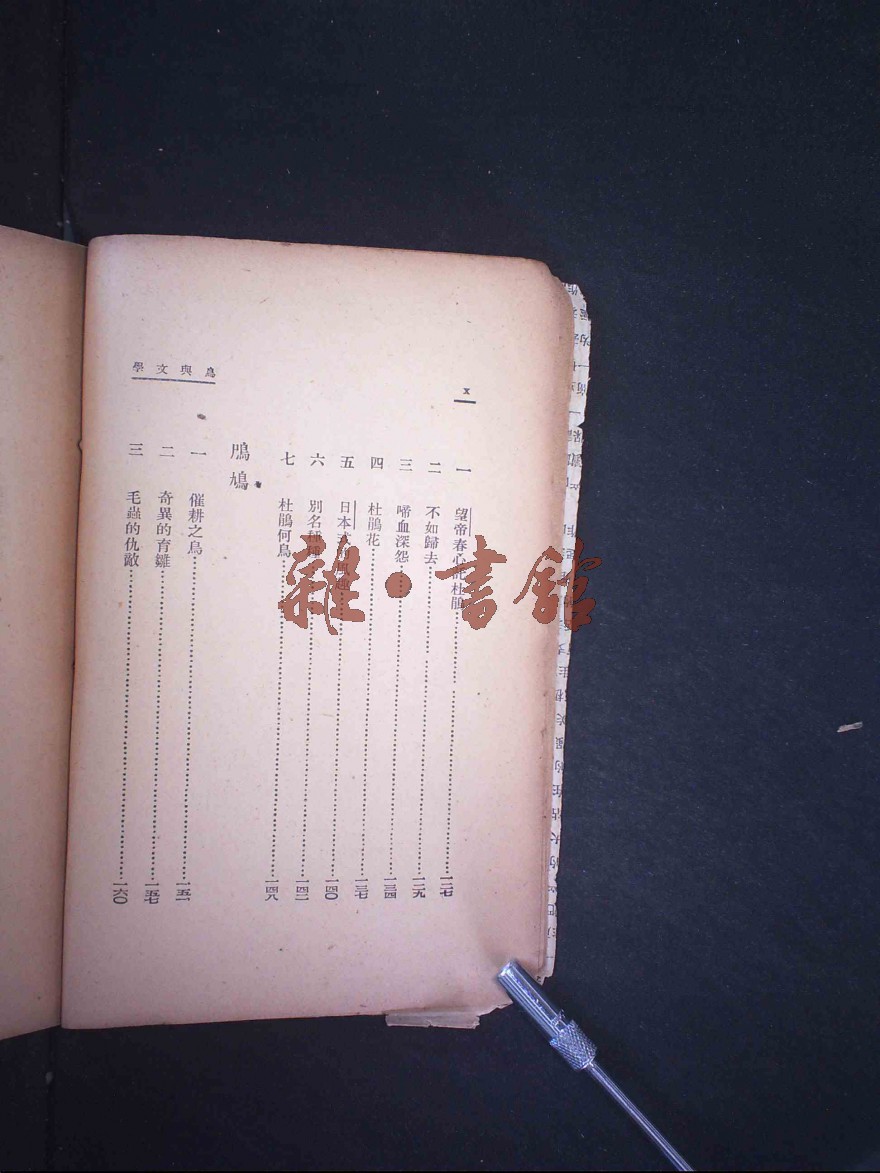 鳥與文學
x
一 望帝春心託杜鵑……一二七
二 不如歸去……一二九
三 啼血深怨……一三四
四 杜鵑花……一三七
五 日本……一四〇
六 別名……一四二
七 杜鵑何鳥……一四八
鳲鳩
一 催耕之鳥……一五一
二 奇異的育雛……一五七
三 毛蟲的仇敵……一六〇
雜·書館